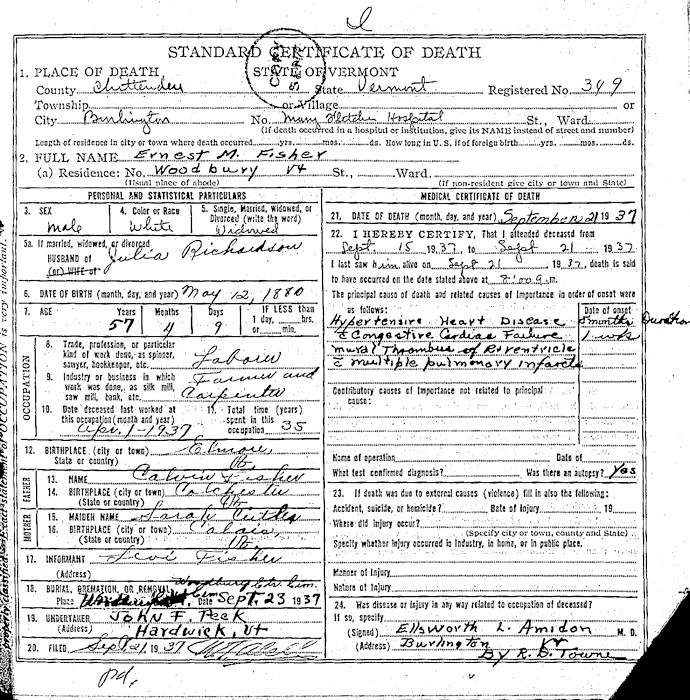 STANDARD CERTIFICATE OF DEATH
STATE OF VERMONT
1. PLACE OF DEATH
County Chittenden State Vermont Registered No. 349
Township or Village or
City Burlington No. Mary Fletcher Hospital St., Ward.
(If death occurred in a hospital or institution, give its NAME instead of street and number)
Length of residence in city or town where death occurred yrs. mos. ds. How long in U. S. if of foreign birth yrs. mos. ds.
2. FULL NAME Ernest M. Fisher
(a) Residence: No. Woodbury Vt St., Ward.
(Usual place of abode) (If non-resident give city or town and State)
PERSONAL AND STATISTICAL PARTICULARS
3. SEX
male
4. Color or Race
White
5. Single, Married, Widowed, or
Divorced (write the word)
Widowed
5a. If married, widowed, or divorced
HUSBAND of Julia Richardson
(or) WIFE of
6. DATE OF BIRTH (month, day, and year) May 12, 1880
7. AGE Years Months Days If LESS than
57 4 9 1 day, hrs.
or min.
OCCUPATION
8. Trade, profession, or particular
kind of work done, as spinner,
sawyer, bookkeeper, etc. Laborer
9. Industry or business in which
work was done, as silk mill,
saw mill, bank, etc. Farmer and
Carpenter
10. Date deceased last worked at
this occupation (month and year)
Apr. 1-1937
11. Total time (years)
spent in this
occupation 35
12. BIRTHPLACE (city or town) Elmore
State or country) Vt.
FATHER
13. NAME Calvin Fisher
14. BIRTHPLACE (city or town) Colchester
(State or country) Vt
MOTHER
15. MAIDEN NAME Sarah
16. BIRTHPLACE (city or town) Calais
(State or country) Vt
17. INFORMANT Levi Fisher
(Address)
18. BURIAL, CREMATION, OR REMOVAL Woodbury Ctr. Cem.
Place Date Sept. 23 1937
19. UNDERTAKER John F. Peck
(Address) Hardwick, Vt
20. FILED Sept 21, 1937
MEDICAL CERTIFICATE OF DEATH
21. DATE OF DEATH (month, day, and year) September 21 1937
22. I HEREBY CERTIFY, That I attended deceased from
Sept. 15 1937, to Sept 21 1937
I last saw him alive on Sept 21 1937, death is said
to have occurred on the date stated above at 8:00 m.
The principal cause of death and related causes of importance in order of onset were
as follows: Date of onset
Hypertensive Heart Disease 8 months Duration
c Congestive Cardiac Failure 1 wk
mural Thrombus of R. Ventricle
c multiple pulmonary infarcts
Contributory causes of importance not related to principal
cause:
Name of operation Date of
What test confirmed diagnosis? Was there an autopsy? Yes
23. If death was due to external causes (violence) fill in also the following:
Accident, suicide, or homicide? Date of Injury 19
Where did injury occur?
(Specify city or town, county and State)
Specify whether injury occurred in industry, in home, or in public place.
Manner of Injury
Nature of Injury
24. Was disease or injury in any way related to occupation of deceased?
If so, specify
(Signed) Ellsworth L. Amidon M. D.
(Address) Burlington Vt
By R. D. Towne
pd.